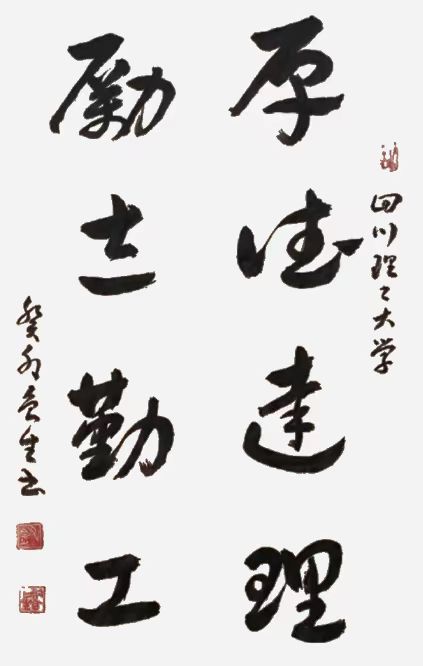 四川理工大学
厚德達理
勵志勤工
癸卯
书